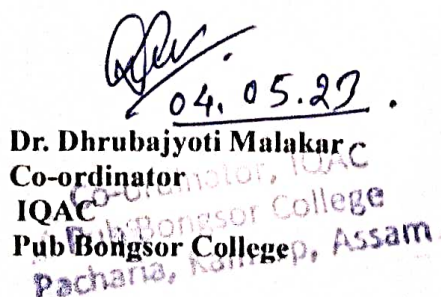 04.05.23.
Dr. Dhrubajyoti Malakar
Co-ordinator
IQAC
Pub Bongsor College
Co-ordinator, IQAC
Pub Bongsor College
Pacharia, Kamrup, Assam